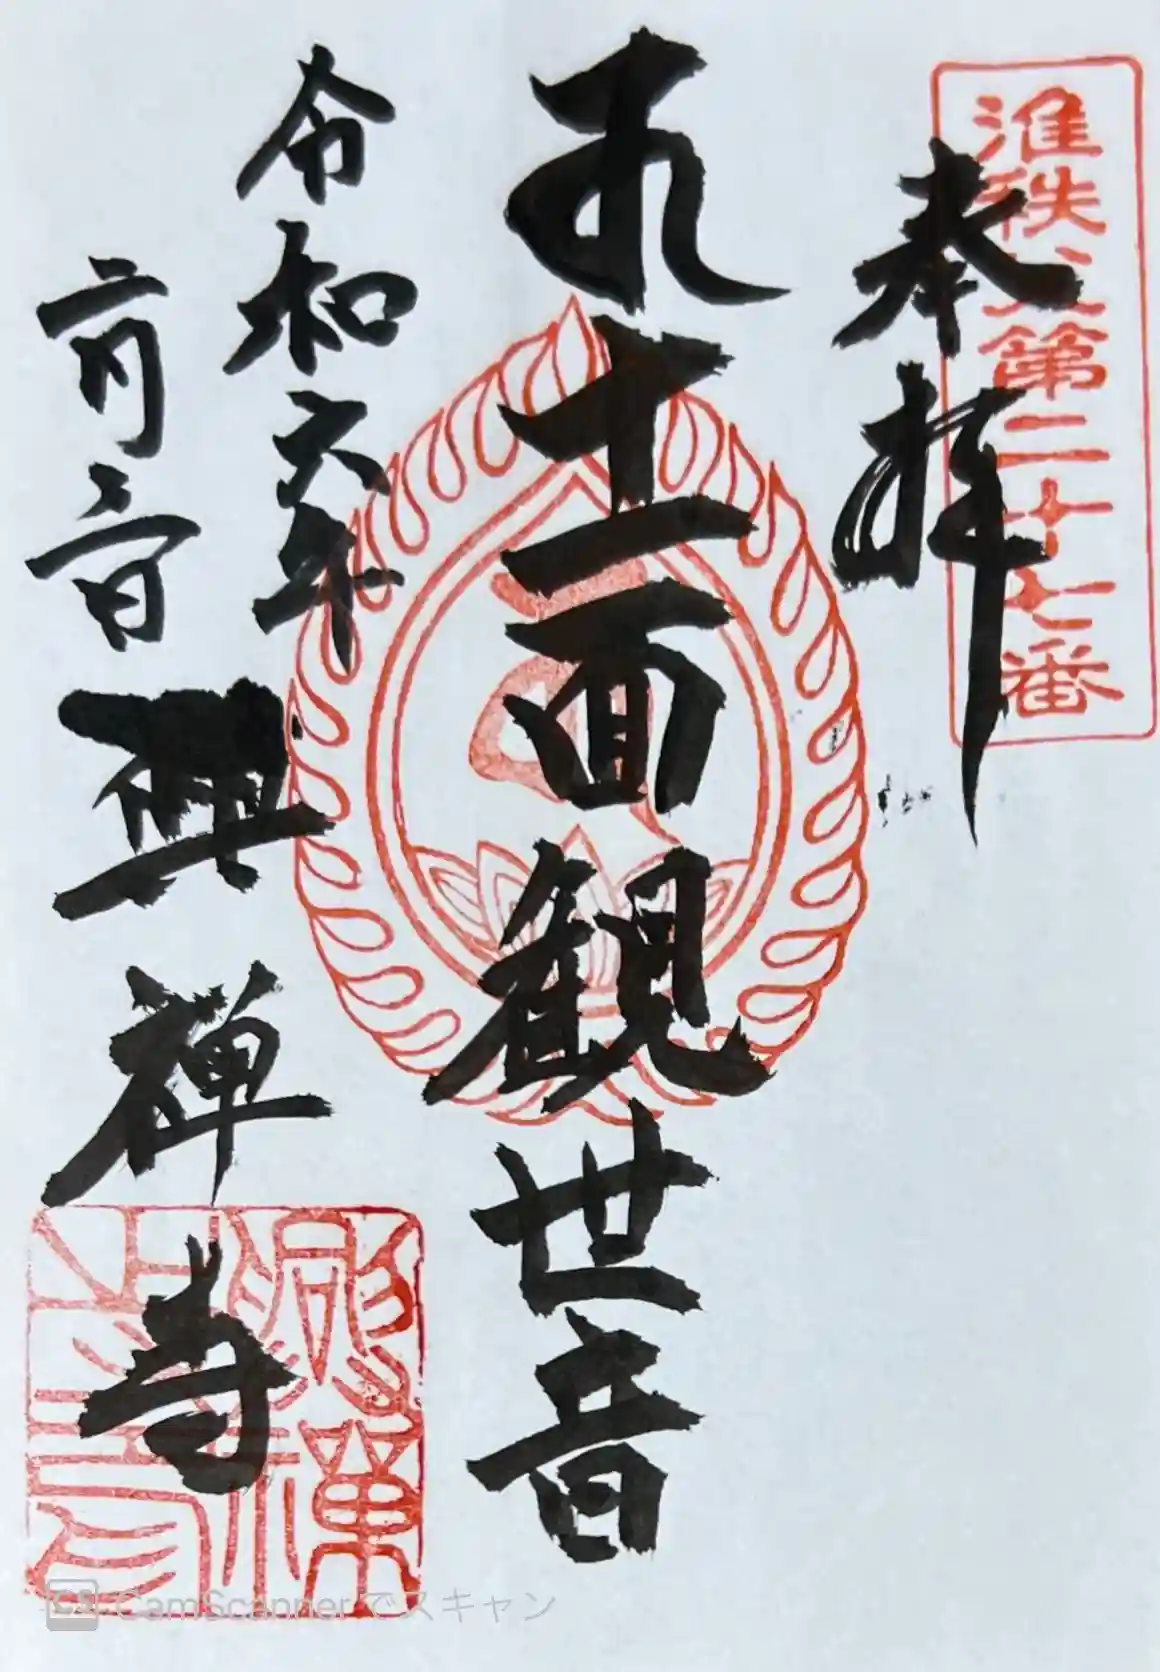 准秩父第二十七番
奉拝
十一面観世音
令和六年
二月日
興禅寺
興禪寺
CS CamScannerでスキャン